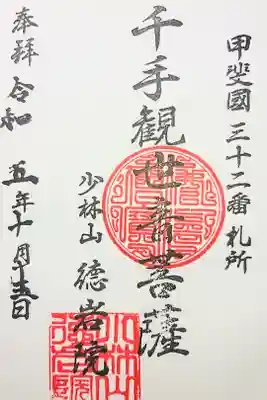 甲斐國三十二番札所
千手観世音菩薩
少林山 德岩院
奉拝 令和五年十月